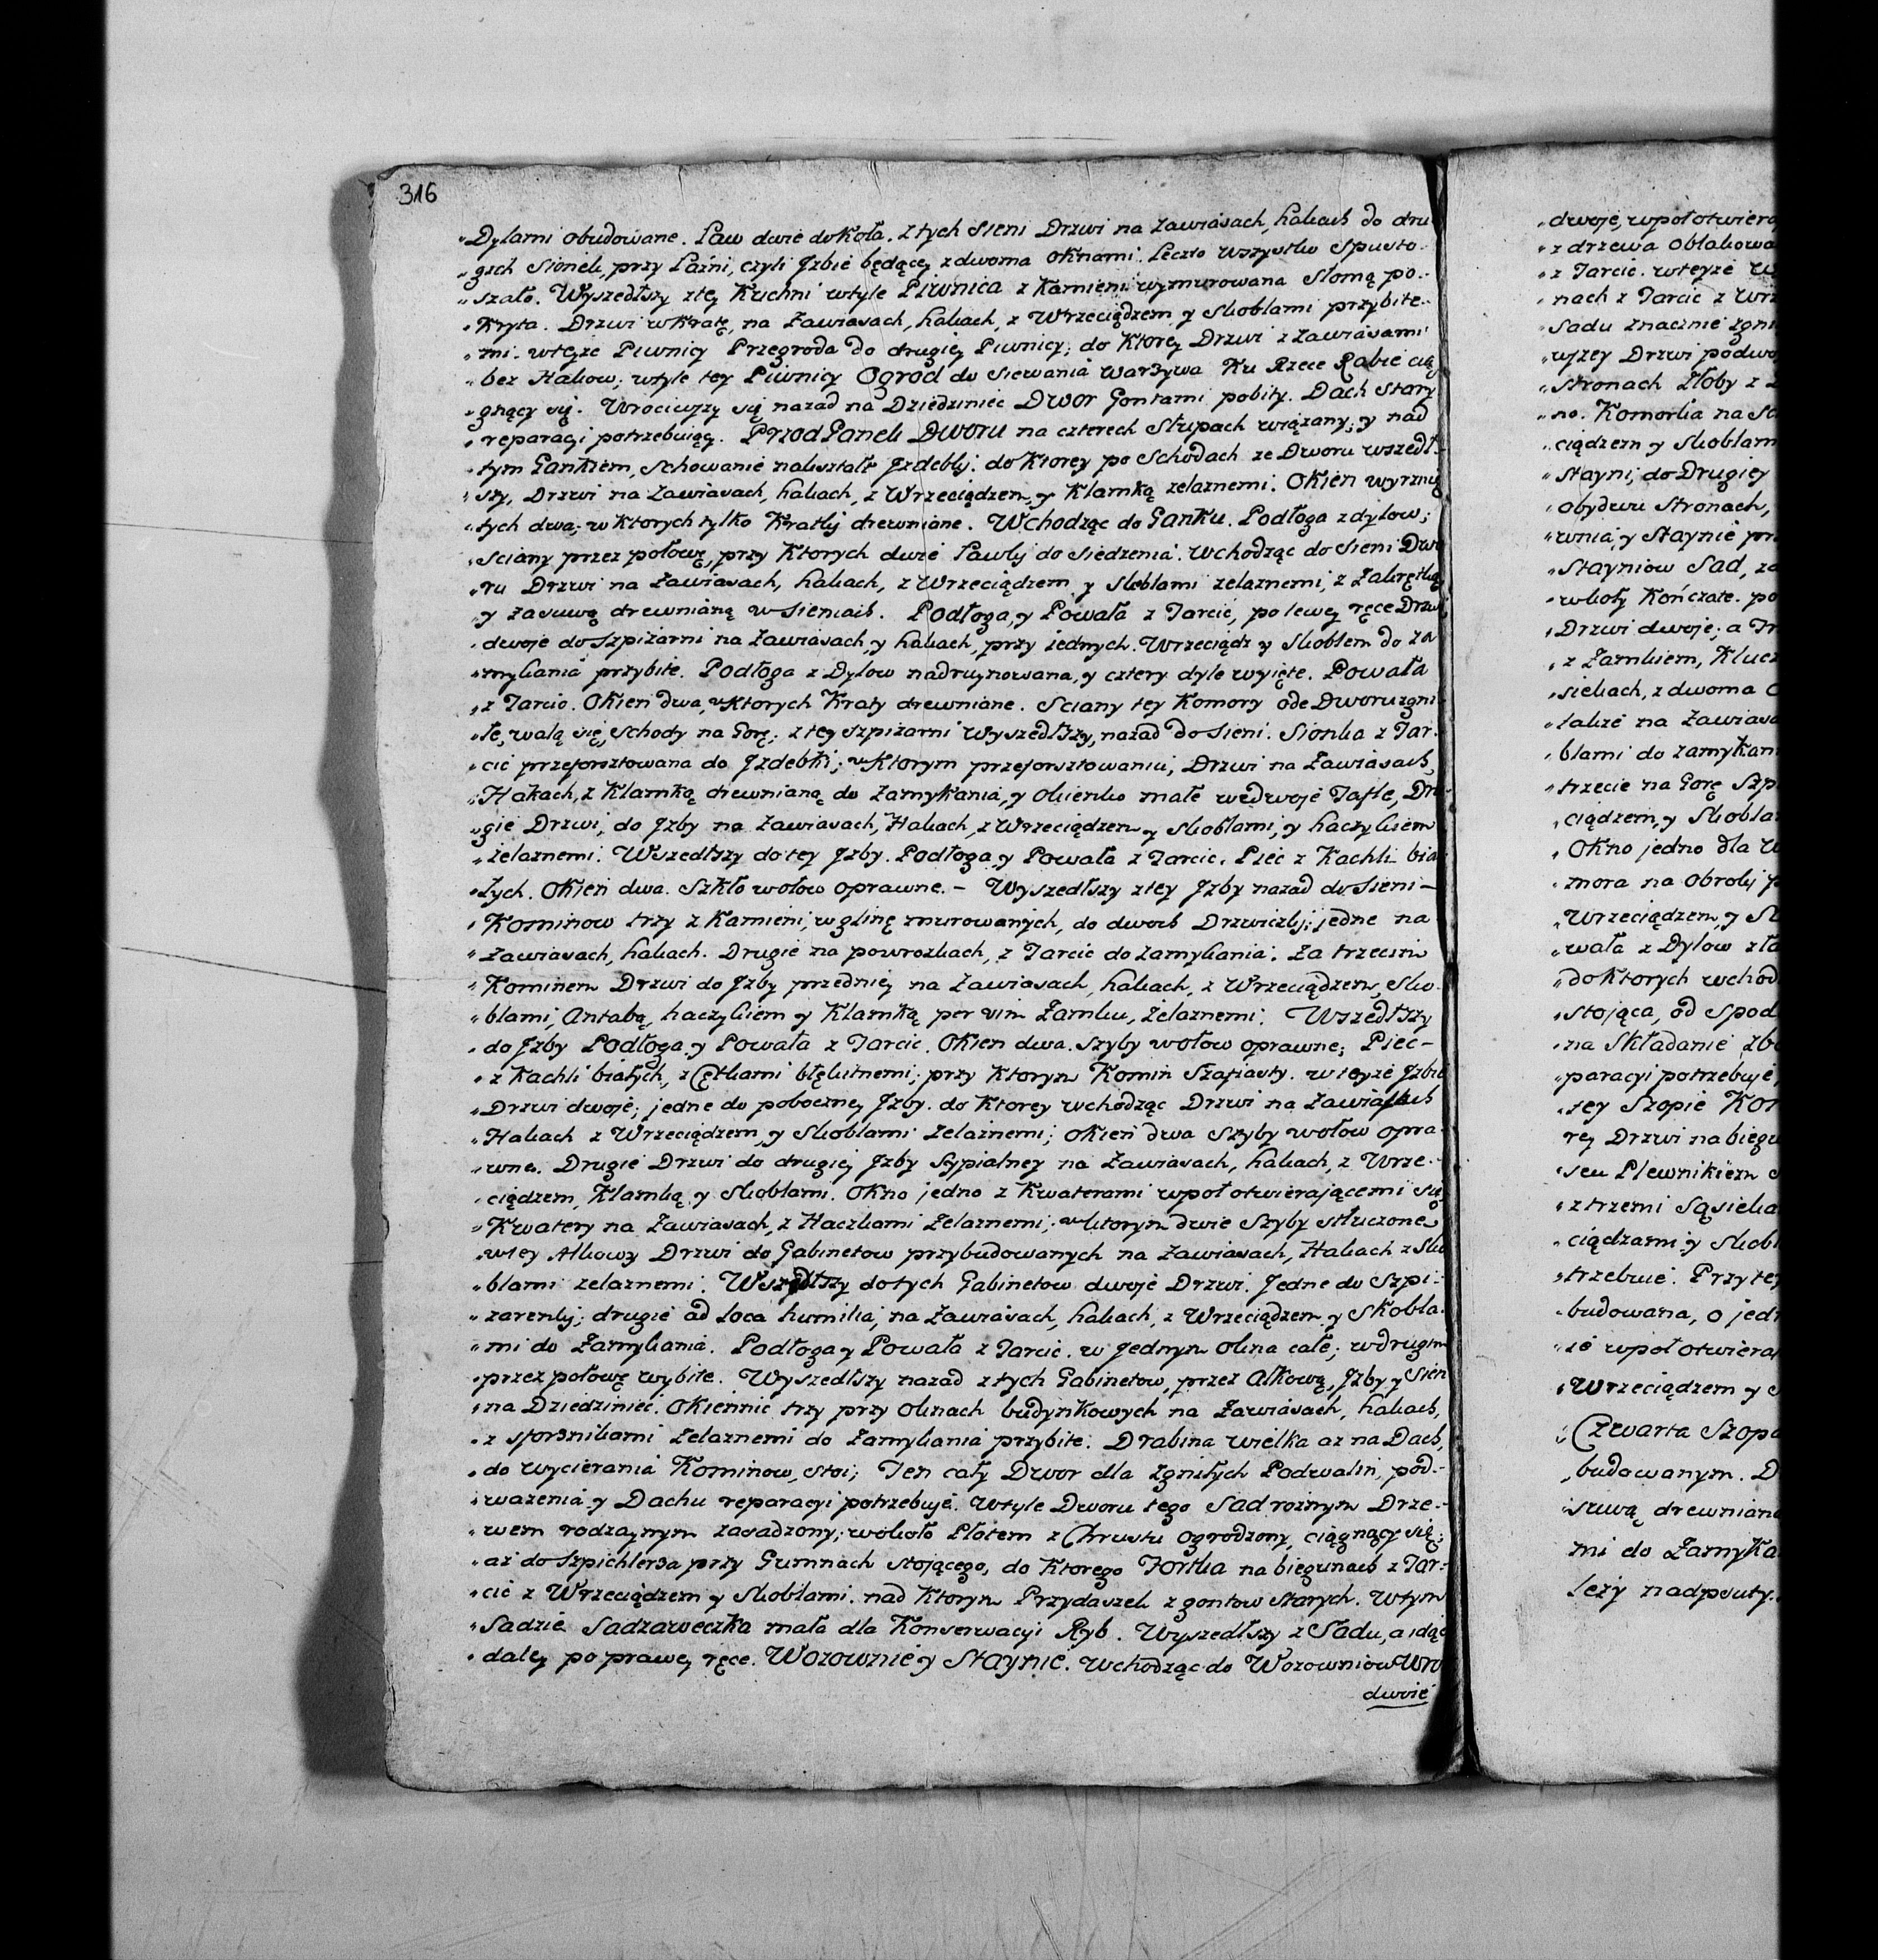 316
„Dylami obudowane. Ław dwie do koła. z tych Sieni Drzwi na Zawiasach, hakach do dru
„gich Sionek, przy Łaźni, czyli Jzbie będącey z dwoma Oknami. Lecz to wszystko Spusto-
„szało. Wyszedłszy z tey Kuchni w tyle Piwnica z Kamieni wymurowana Słomą po-
„kryta. Drzwi w kratę, na Zawiasach, hakach, z Wrzeciądzem y Skoblami przybite-
„mi. w teyże Piwnicy Przegroda do drugiey Piwnicy; do Ktorey Drzwi z Zawiasami
„bez Hakow; w tyle tey Piwnicy Ogrod do Siewania Warzywa Ku Rzece Rabie cią
„gnący się. Wrociwszy się nazad na Dziedziniec Dwor Gontami pobity. Dach Stary
„reparacyi potrzebuiący. Przod Ganek Dworu na czterech Słupach wiązany; y nad
„tym Gankiem, Schowanie nakształt Jzdebky. do Ktorey po Schodach ze Dworu wszedł-
„szy, Drzwi na Zawiasach, hakach, z Wrzeciądzem, y Klamką żelaznemi. Okien wyrznię
„tych dwa; w Ktorych tylko Kratky drewniane. Wchodząc do Ganku. Podłoga z dylow;
„Sciany przez połowę, przy Ktorych dwie Ławky do Siedzenia. Wchodząc do Sieni Dwo
„ru Drzwi na Zawiasach, hakach, z Wrzeciądzem y Skoblami żelaznemi, z Zakrętką
„y Zasuwą drewnianą w Sieniach. Podłoga, y Powała z Tarcic, po lewey ręce Drzwi
„dwoje do Szpiżarni na Zawiasach, y hakach, przy jednych. Wrzeciądz y Skoblem do za
„mykania przybite. Podłoga z Dylow nadruynowana, y cztery dyle wyięte. Powała
„z Tarcic. Okien dwa, w Ktorych Kraty drewniane. Sciany tey Komory ode Dworu zgni
„łe, walą się, Schody na Gorę; z tey Szpiżarni Wyszedłszy, nazad do Sieni. Sionka z Tar-
„cic przeforsztowana do Jzdebki; w Ktorym przeforsztowaniu, Drzwi na Zawiasach,
„Hakach, z Klamką drewnianą do Zamykania, y Okienko małe we dwoje Tafle, Dru
„gie Drzwi, do Jzby na Zawiasach, Hakach z Wrzeciądzem y Skoblami, y haczykiem
„żelaznemi. Wszedłszy do tey Jzby. Podłoga y Powała z Tarcic. Piec z Kachli bia
„łych. Okien dwa. Szkło w ołow oprawne. – Wyszedłszy z tey Jzby nazad do Sieni –
„Kominow trzy z Kamieni, w glinę murowanych, do dwoch Drzwiczky; jedne na
„Zawiasach, hakach. Drugie na powrozkach, z Tarcic do Zamykania. Za trzecim
„Kominem Drzwi do Jzby przedniey na Zawiasach, hakach, z Wrzeciądzem, Sko-
„blami, Antabą, haczykiem y Klamką per vim Zamku, Żelaznemi. Wszedłszy
„do Jzby Podłoga y Powała z Tarcic. Okien dwa. Szyby w ołow oprawne; Piec –
„z Kachli białych, z Cętkami błękitnemi; przy Ktorym Komin Szafiasty. w teyże Jzbie
„Drzwi dwoje; jedne do poboczney Jzby. do Ktorey wchodząc Drzwi na Zawiasach
„Hakach z Wrzeciądzem, y Skoblami Żelaznemi; Okien dwa Szyby w ołow opra-
„wne. Drugie Drzwi do drugiey Jzby Sypialney na Zawiasach, hakach, z Wrze-
„ciądzem, Klamką y Skoblami. Okno jedno z Kwaterami wpoł otwierającemi się
„Kwatery na Zawiasach, z Haczkami Żelaznemi; w ktorym dwie Szyby Stłuczone
„w tey Alkowy Drzwi do Gabinetow przybudowanych na Zawiasach, Hakach z Sko
„blami żelaznemi. Wszedłszy do tych Gabinetow dwoje Drzwi. Jedne do Szpi-
„żarenky; drugie ad Loca humilia, na Zawiasach, hakach, z Wrzeciądzem y Skobla-
„mi do Zamykania. Podłoga y Powała z Tarcic. w Jednym Okna całe; w drugim
„przez połowę wybite. Wyszedłszy nazad z tych Gabinetow, przez Alkowę, Jzby y Sień
„na Dziedziniec. Okiennic trzy przy Oknach budynkowych na Zawiasach, hakach,
„z sforznikami Żelaznemi do Zamykania przybite. Drabina wielka aż na Dach,
„do wycierania Kominow, Stoi; Ten cały Dwor dla Zgniłych Podwalin, pod-
„ważenia y Dachu reparacyi potrzebuje. W tyle Dworu tego Sad rożnym Drze-
„wem rodzaynym zasadzony; w około Płotem z Chrustu Ogrodzony, ciągnący się,
„aż do Szpichlerza przy Gumnach Stojącego, do Ktorego Fortka na biegunach z Tar-
„cic z Wrzeciądzem y Skoblami. nad Ktorym Przydaszek z gontow Starych. W tym
„Sadzie Sadzaweczka mała dla Konserwacyi Ryb. Wyszedłszy z Sadu, a idąc
„daley po prawey ręce. Wozownie y Staynie. Wchodząc do Wozowniow Wro
dwoie
„dwoje, wpoł otwiera
„z drzewa
„z Tarcic. w teyże
„nach z Tarcic z Wrz
„Sadu Znacznie Zgni
„wszey Drzwi podwo
„Stronach Żłoby z
„no. Komorka na
„ciądzem y Skoblam
„Stayni, do Drugiey
„Obydwu Stronach,
„wnia, y Staynie
„Stayniow Sad,
„wkoły Kończate. po
„Drzwi dwoje; a
„z Zamkiem, Klucz
„siekach, z dwoma
„także na Zawiasa
„blami do zamykan
„trzecie na Gorę Szp
„ciądzem, y Skobla
„Okno jedno dla
„mora na Obroky
„Wrzeciądzem, y
„wała z Dylow
„do Ktorych wchod
„Stojąca, od Spod
„na Składanie
„paracyi potrzebuje,
„tey Szopie
rey Drzwi na biegu
„seu Plewnikiem
„z trzemi Sąsieka
„ciądzami y Skobl
„trzebuie. Przy tey
„budowana, o jed
„ie wpoł otwiera
„Wrzeciądzem y
„Czwarta Szopa
„budowanym.
„suwą drewnian
mi do Zamyka
leży nadpsuty.